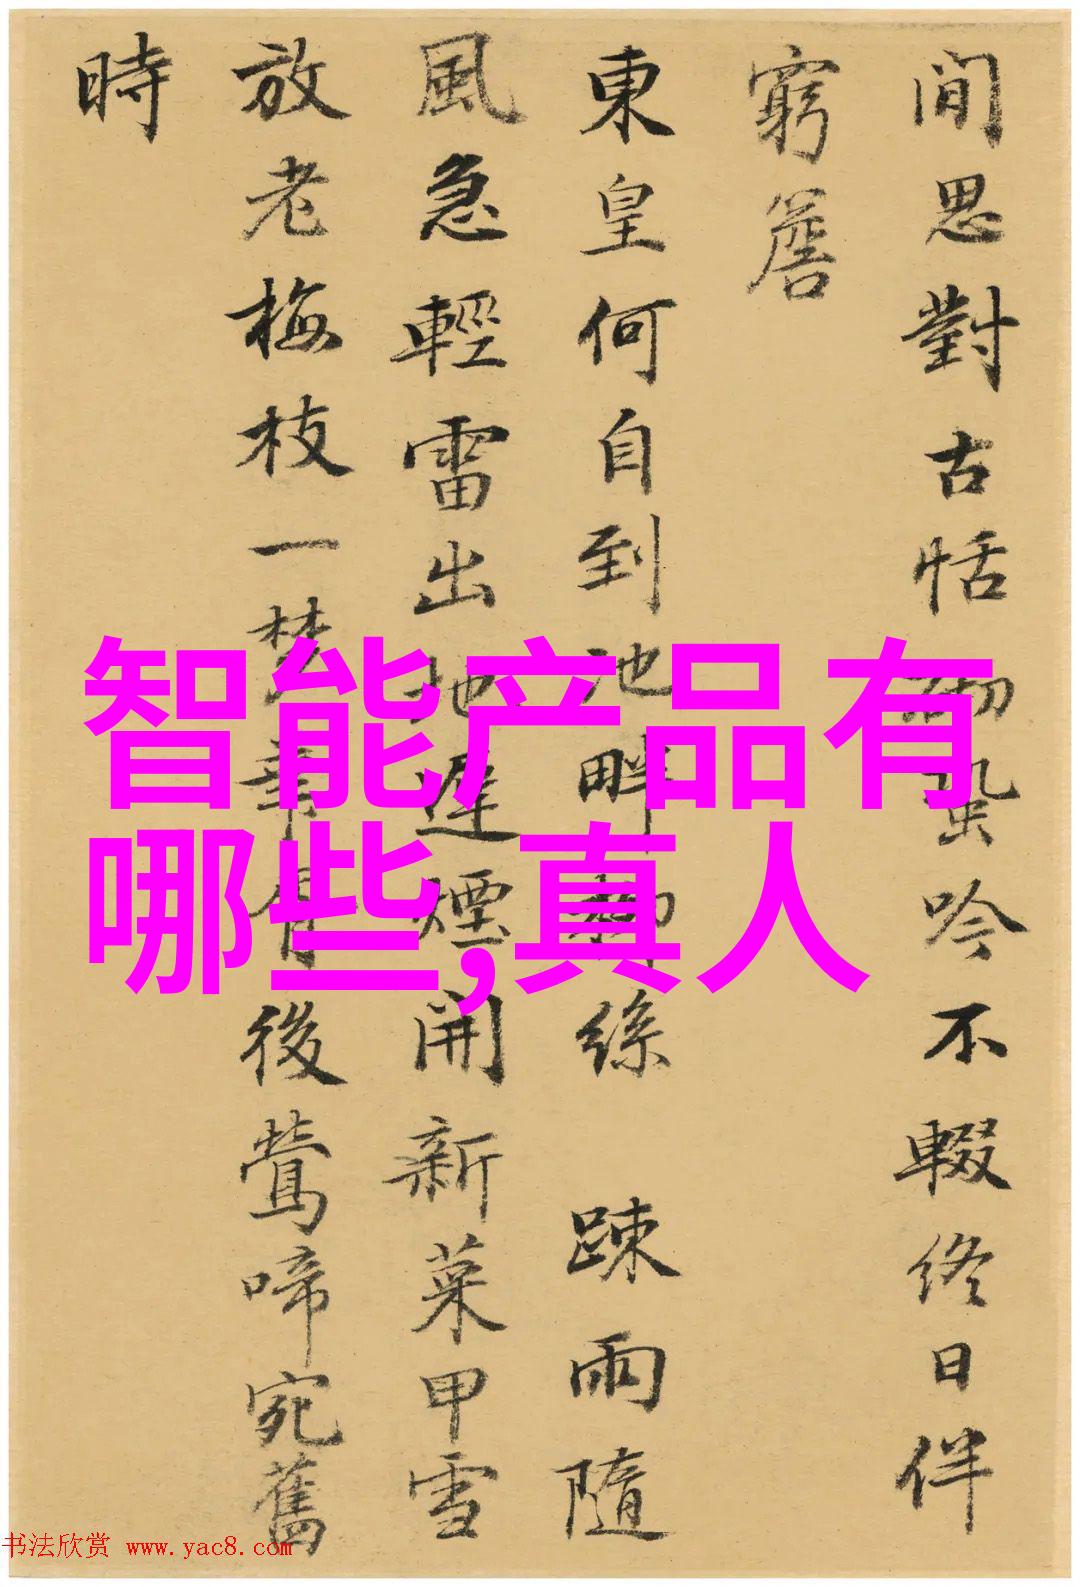 閒思對古恬砌蛩吟不輟終日伴
窮簷
東皇何自到池畔柳絲 踈雨隨
風急輕雷出地遲煙開新菜甲雪
放老梅枝一梦華胥後鶯啼宛舊
時
智能产品有
哪些,真人
书法欣赏 www.yac8.com